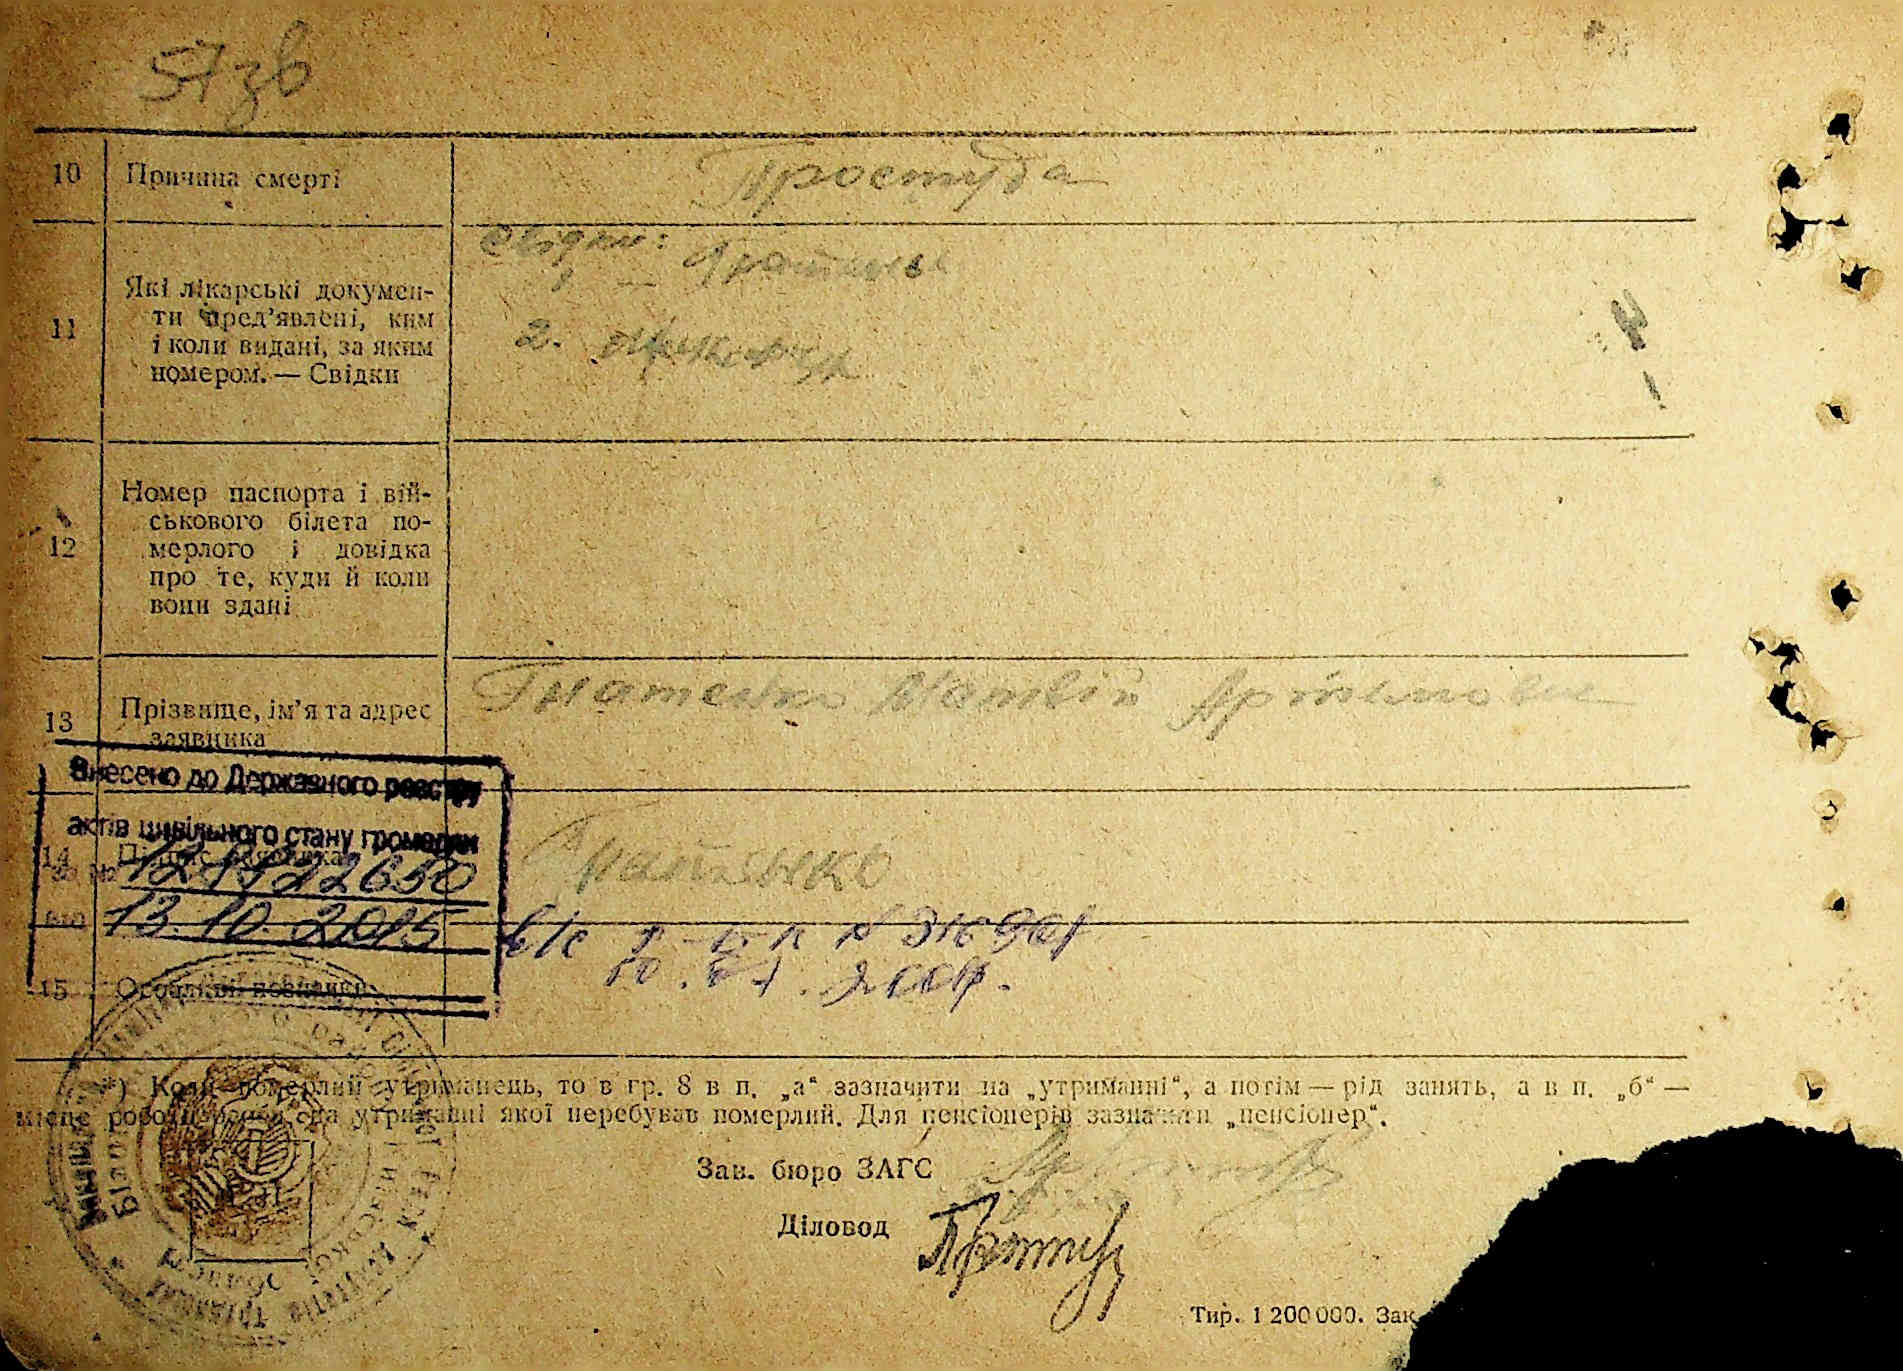 57зв
10 Причина смерті Простуда
11 Які лікарські докумен-
ти пред'явлені, ким
і коли видані, за яким
номером. — Свідки
Свідки:
2.
12 Номер паспорта і вій-
ськового білета по-
мерлого і довідка
про те, куди й коли
вони здані
13 Прізвище, ім'я та адрес
заявника
Гнатенко Матвій Артемович
Внесено до Державного реєстру
актів цивільного стану громадян
14 Підпис заявника Гнатенко
за №
від 13.10.2015
15 Особливі позначки
*) Коли померлий утриманець, то в гр. 8 в п. „а“ зазначити на „утриманні“, а потім — рід занять, а в п. „б“ —
місце роботи особи на утриманні якої перебував померлий. Для пенсіонерів зазначити „пенсіонер“.
Зав. бюро ЗАГС
Діловод
Тир. 1 200 000. Зак